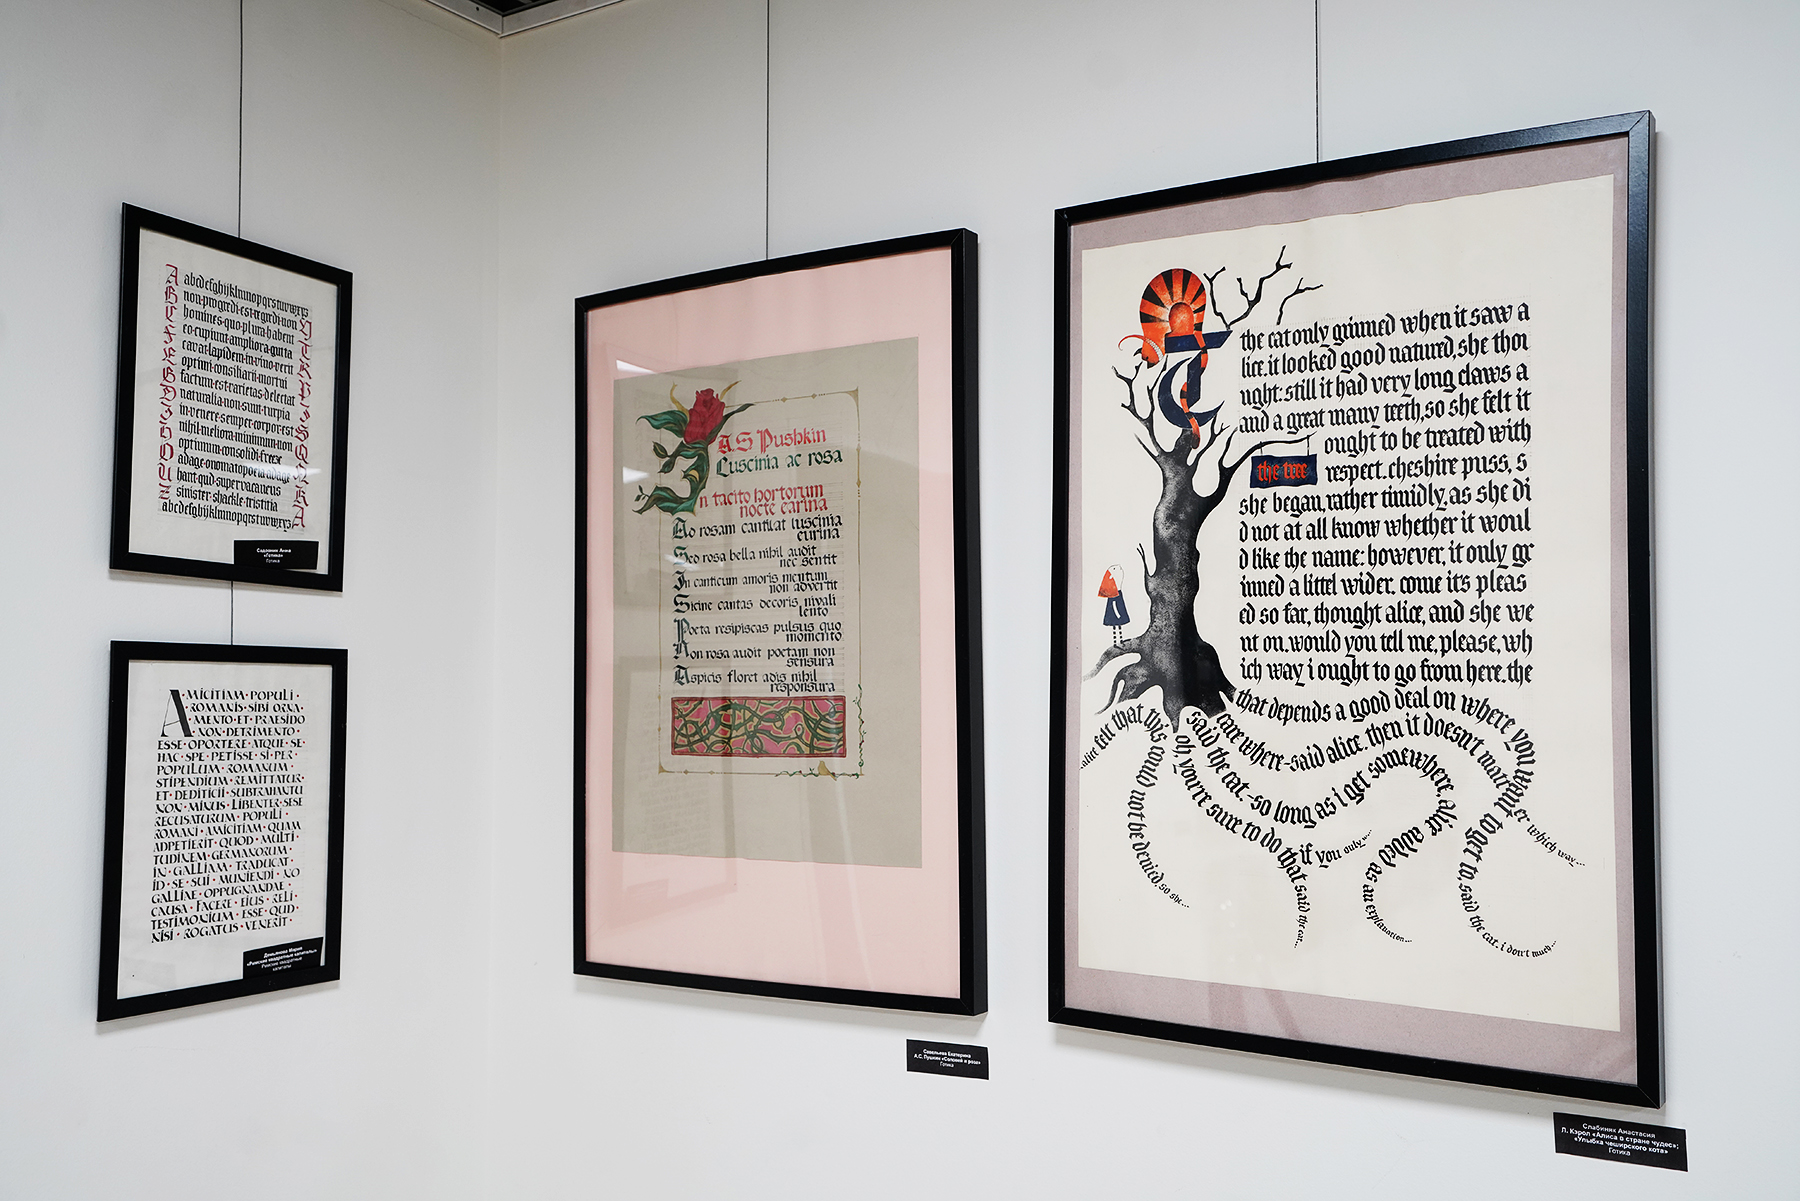 abcdefghijklmnopqrstuvwxyz
non·progredi·est·regredi·non
homines·quo·plura·habent
eo·cupiunt·ampliora·gutta
cavat·lapidem·in·vino·verit
optimi·consiliarii·mortui
factum·est·varietas·delectat
naturalia·non·sunt·turpia
in·venere·semper·corpor·est
nihil·meliora·minimum·non
optimum·consolidi·freeze
adage·onomatopoeia·adage
hant·quid·supervacaneus
sinister·shackle·tristitia
abcdefghijklmnopqrstuvwxyz
Садовник Анна
«Готика»
Готика
A·MICITIAM·POPULI·
ROMANIS·SIBI·ORNA
·MENTO·ET·PRAESIDO
·NON·DETRIMENTO·
ESSE·OPORTERE·ATQUE·SE·
HAC·SPE·PETISSE·SI·PER·
POPULUM·ROMANUM·
STIPENDIUM·REMITTATUR·
ET·DEDITICII·SUBTRAHANTU
NON·MINUS·LIBENTER·SESE
RECUSATURUM·POPULI·
ROMANI·AMICITIAM·QUAM
ADPETIERIT·QUOD·MULTI
TUDINEM·GERMANORUM·
IN·GALLIAM·TRADUCAT·
ID·SE·SUI·MUNIENDI·NO
GALLIAE·OPPUGNANDAE·
CAUSA·FACERE·EIUS·RELI
TESTIMONIUM·ESSE·QUD·
NISI·ROGATUS·VENERIT·
Демьяненко Мария
«Римские квадратные капиталы»
Римские квадратные
капиталы
A.S Pushkin
Luscinia ac rosa
In tacito hortorum
nocte earina
Ao rosam cantitat luscinia
eurina
Seo rosa bella nihil audit
nec sentit
In canticum amoris mentum
non advertit
Sicine cantas decoris nivali
lento
Poeta resipiscas pulsus quo
momento
Non rosa audit poetam non
sensura
Aspicis floret adis nihil
responsura
Савельева Екатерина
А.С. Пушкин «Соловей и роза»
Готика
the cat only grinned when it saw a
lice.it looked good natured,she thou
ught: still it had very long claws a
and a great many teeth,so she felt it
ought to be treated with
the tree
respect.cheshire puss, s
she began,rather timidly,as she di
d not at all know whether it woul
d like the name: however, it only gr
inned a littel wider. come it's pleas
ed so far, thought alice, and she we
nt on.would you tell me,please,wh
ich way i ought to go from here.the
that depends a good deal on where you want to get to, said the cat. i don't much...
care where-said alice. then it doesn't matter which way...
said the cat.-so long as i get somewhere, alice added as an explanation...
oh, you're sure to do that said the cat...
if you only...
alice felt that this could not be denied, so she...
Слабиняк Анастасия
Л. Кэрол «Алиса в стране чудес»:
«Улыбка чеширского кота»
Готика